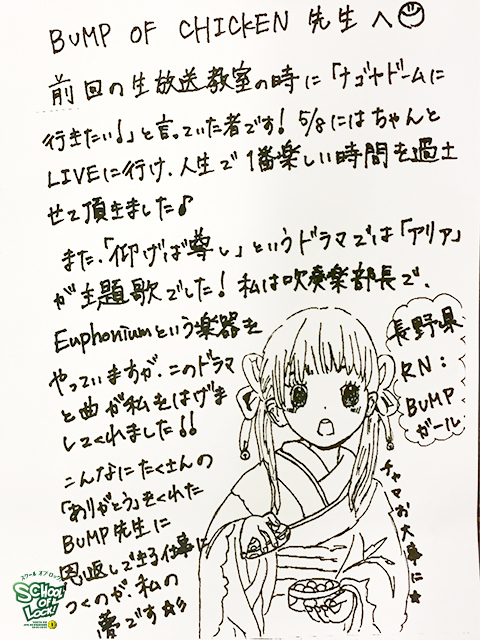 BUMP OF CHICKEN 先生へ
前回の生放送教室の時に「ナゴヤドームに
行きたい!」と言っていた者です! 5/8にはちゃんと
LIVEに行け、人生で1番楽しい時間を過ご
せて頂きました♪
また、「仰げば尊し」というドラマでは「アリア」
が主題歌でした!私は吹奏楽部長で、
Euphoniumという楽器を
やっていますが、このドラマ
と曲が私をはげま
してくれました!!
こんなにたくさんの
「ありがとう」をくれた
BUMP先生に
恩返しできる仕事に
つくのが、私の
夢です☆彡
長野県
RN:
BUMP
ガール
チャマお大事に☆
スクール オブ ロック!
SCHOOL
OF
LOCK!